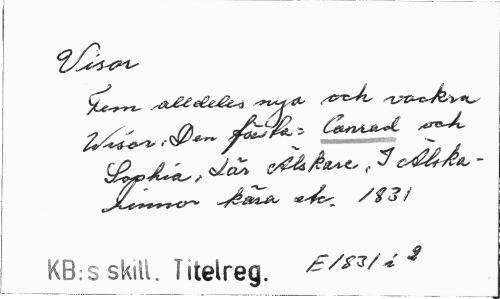 Visor
Fem alldeles nya och vackra
Wisor. Den första: Conrad och
Sophia, Lär Älskare, I Älska-
rinnor kära etc. 1831
KB:s skill. Titelreg.
E 1831 i 2